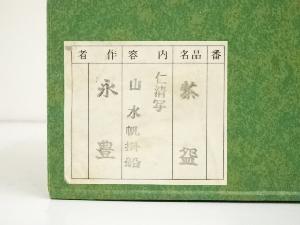 番
品名
茶盌
内容
仁清写
山水帆掛船
作者
永豊